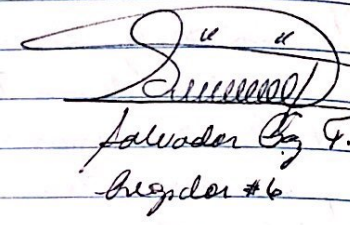 " "
Salvador Paz F.
Regidor #6